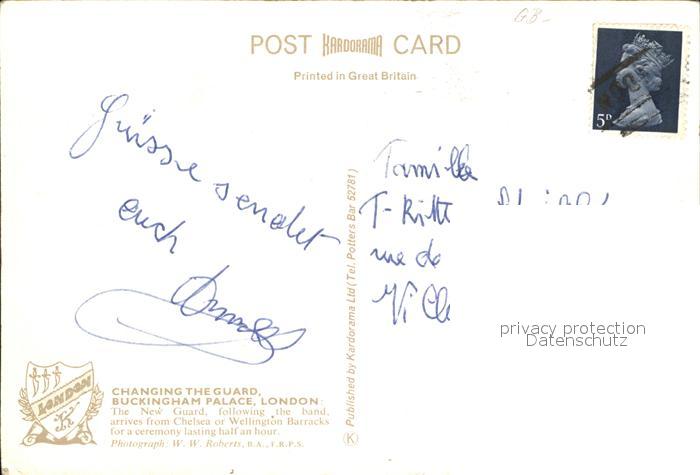 GB-
POST KARDORAMA CARD
Printed in Great Britain
5D
Grüsse sendet
euch
Familie
T-
rue de
privacy protection
Datenschutz
Published by Kardorama Ltd (Tel. Potters Bar 52781)
K
LONDON
CHANGING THE GUARD,
BUCKINGHAM PALACE, LONDON:
The New Guard, following the band,
arrives from Chelsea or Wellington Barracks
for a ceremony lasting half an hour.
Photograph: W. W. Roberts, B.A., F.R.P.S.